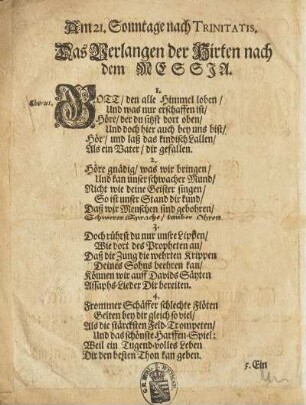 Am 21. Sonntage nach TRINITATIS.
Das Verlangen der Hirten nach
dem MESSIA.
1.
Chorus.
GOTT/ den alle Himmel loben/
Und was nur erschaffen ist/
Höre/ der du sitzst dort oben/
Und doch hier auch bey uns bist/
Hör/ und laß das kindisch Lallen/
Als ein Vater/ dir gefallen.
2.
Höre gnädig/ was wir bringen/
Und kan unser schwacher Mund/
Nicht wie deine Geister singen/
So ist unser Stand dir kund/
Daß wir Menschen sind gebohren/
Schwerer Sprache/ Ohren.
3.
Doch rührst du nur unsre Lippen/
Wie dort des Propheten an/
Daß die Zung die wehrten Krippen
Deines Sohns beehren kan/
Können wir auff Davids Säyten
Assaphs-Lieder Dir bereiten.
4.
Frommer Schäffer schlechte Flöten
Gelten bey dir gleich so viel/
Als die stärcksten Feld-Trompeten/
Und das schönste Harffen-Spiel:
Weil ein Tugend-volles Leben
Dir den besten Thon kan geben.
5. Ein